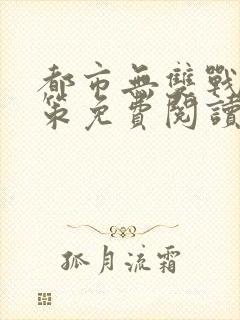 都市無雙戰
策免費閱讀
孤月流霜